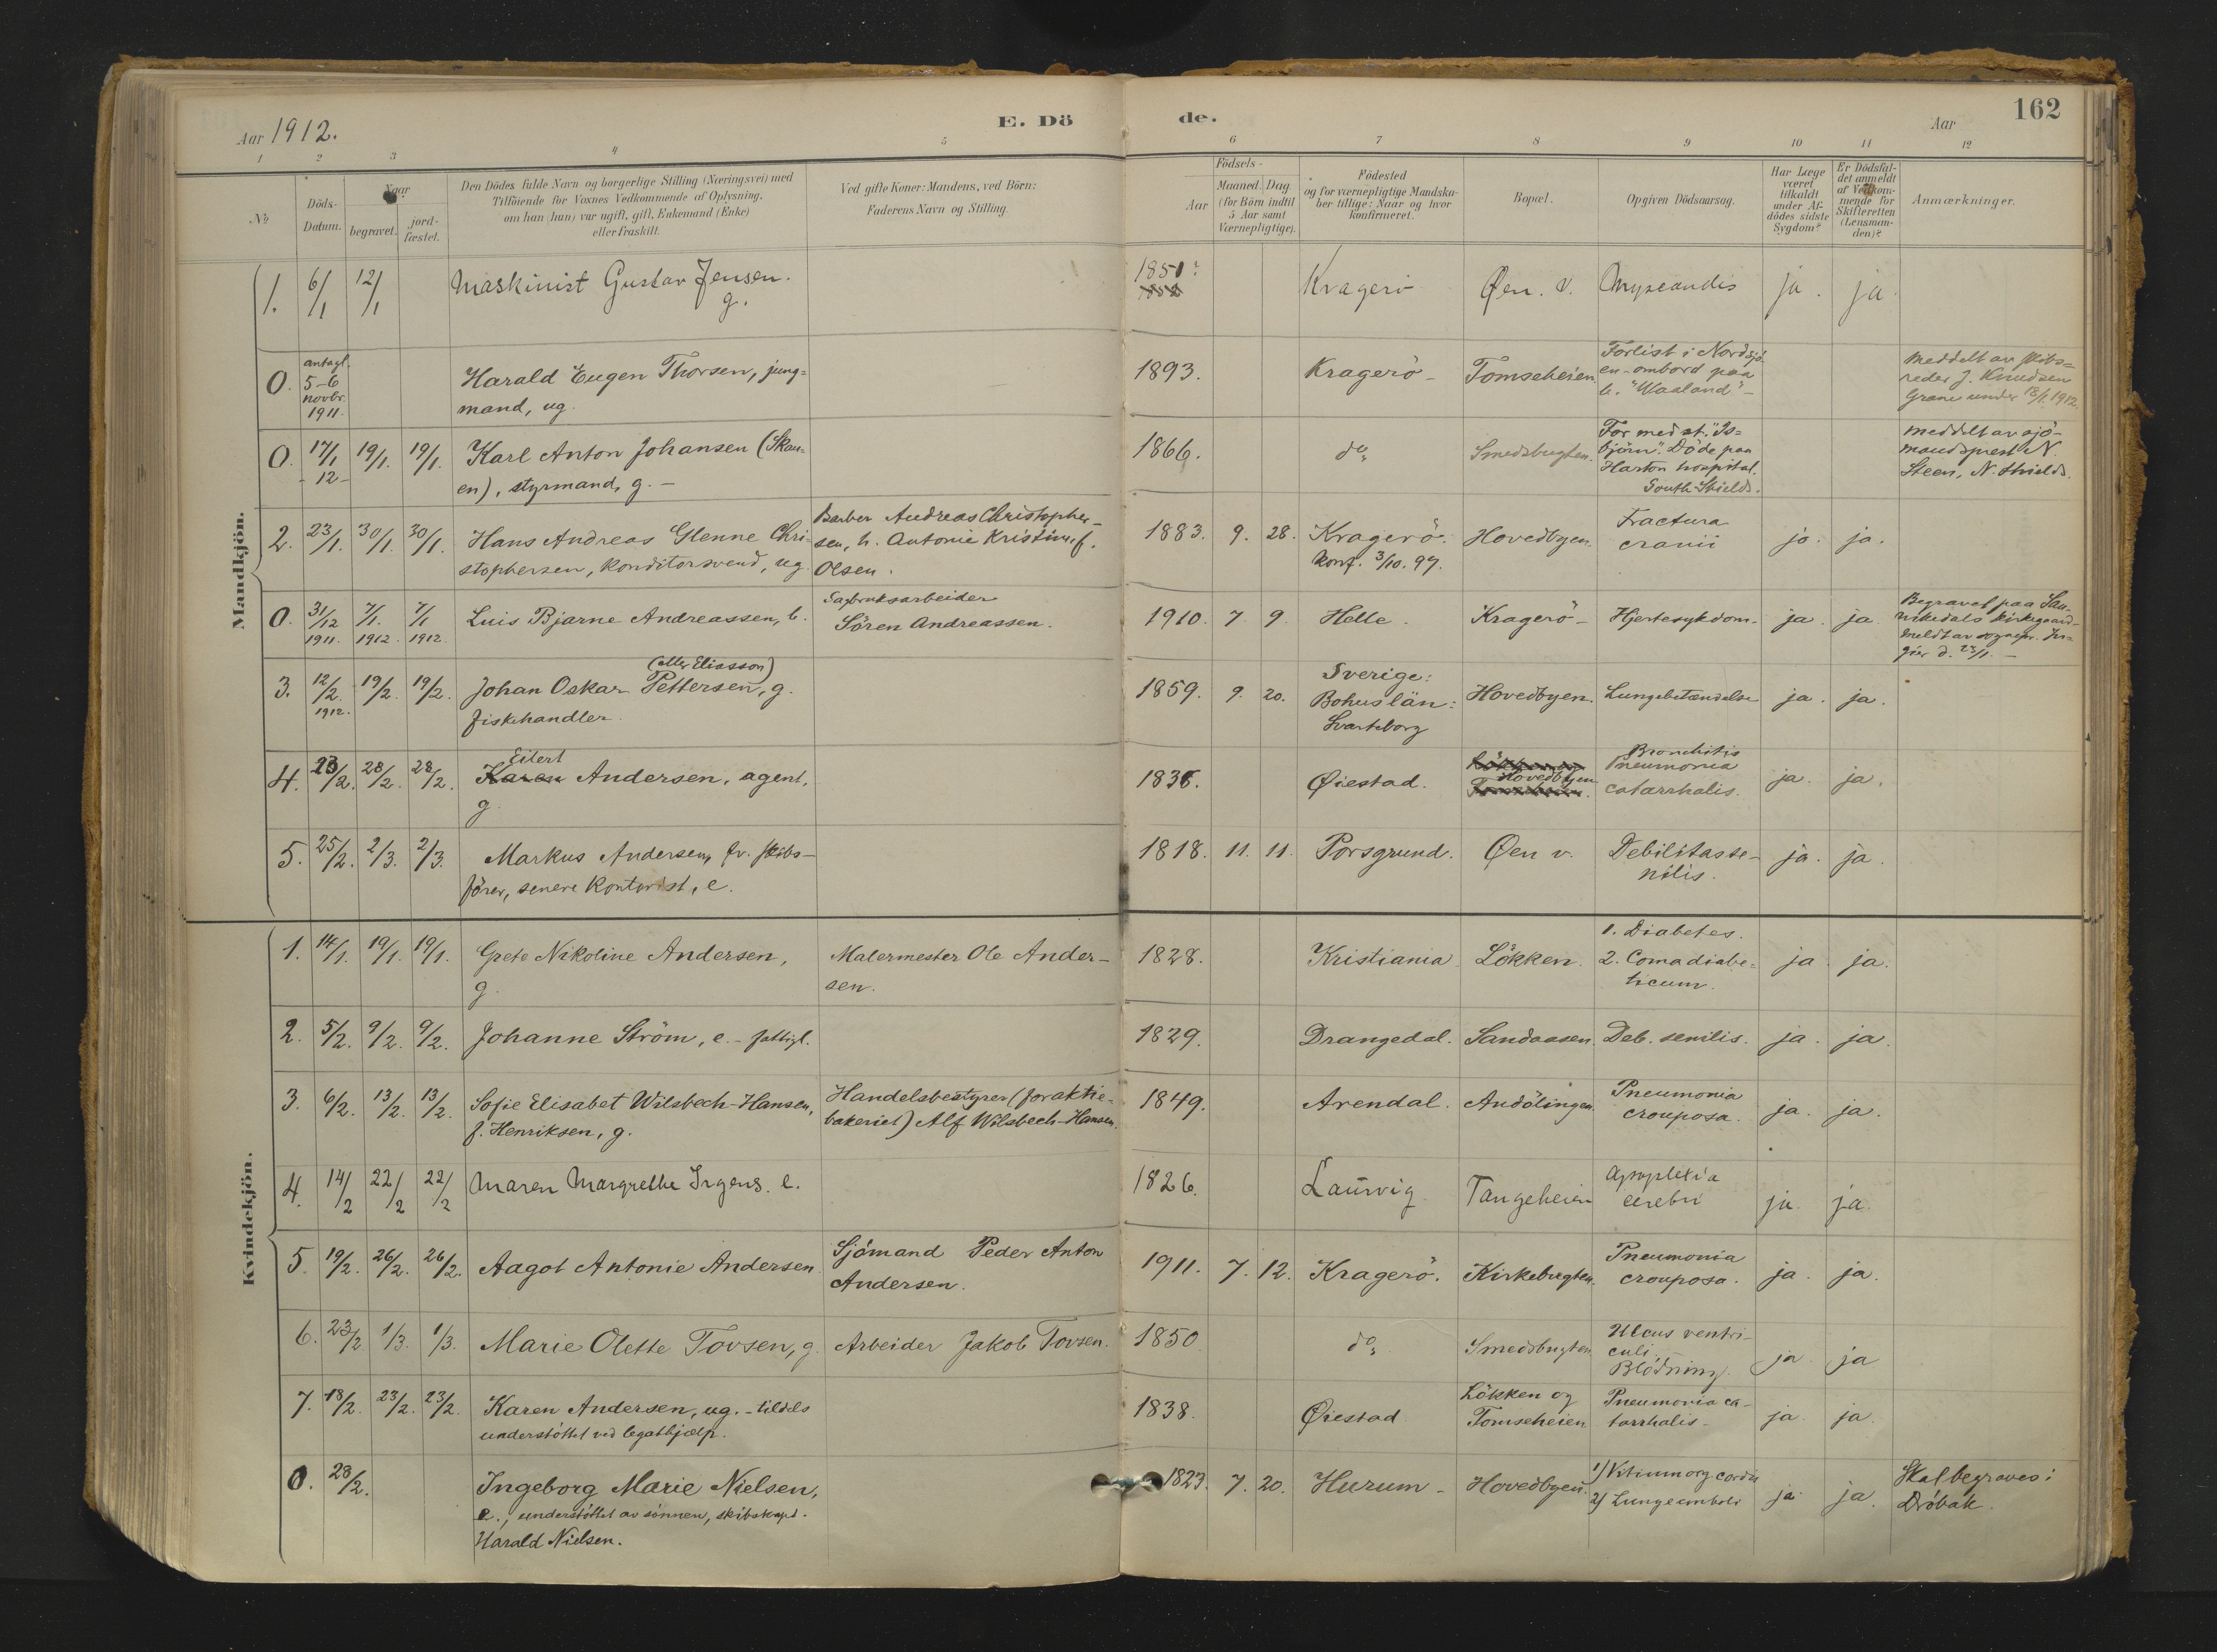 Aar 1912.
E. Dö
de.
Aar
162
1 2 3 4 5 6 7 8 9 10 11 12
№
Döds-
Datum.
Naar
begravet.
jord-
fæstet.
Den Dödes fulde Navn og borgerlige Stilling (Næringsvei) med
Tilföiende for Voxnes Vedkommende af Oplysning,
om han (hun) var ugift, gift, Enkemand (Enke)
eller fraskilt.
Ved gifte Koner: Mandens, ved Börn:
Faderens Navn og Stilling.
Födsels-
Aar
Maaned. Dag.
(for Börn indtil
5 Aar samt
Værnepligtige).
Födested
og for værnepligtige Mandska-
ber tillige: Naar og hvor
konfirmeret.
Bopæl.
Opgiven Dödsaarsag.
Har Læge
været
tilkaldt
under Af-
dödes sidste
Sygdom?
Er Dödsfal-
det anmeldt
af Vedkom-
mende for
Skifteretten
(Lensman-
den)?
Anmærkninger.
Mandkjön.
1. 6/1 12/1 Maskinist Gustav Jensen.
g.
1851?
1852
Kragerö Øen. v. ja. ja.
0. antagl.
5-6
novbr.
1911.
Harald Eugen Thorsen, jung-
mand, ug.
1893. Kragerö - Tomseheien.
Forlist i Nordsjö-
en - ombord paa
b. "Waaland" -
Meddelt av skibs-
reder J. Knudsen
Grane under 18/1. 1912.
0. 17/1 19/1. 19/1.
- 12 -
Karl Anton Johansen (Skau-
en), styrmand, g. -
1866. do. Smedsbugten.
For med st. "Is-
björn". Döde paa
Harton hospital.
South Shields.
Meddelt av sjö-
mandsprest N.
Steen, N. Shields.
2. 23/1. 30/1. 30/1.
Hans Andreas Glenne Chri-
stophersen, konditorsvend, ug.
Barber Andreas Christopher-
sen, h. Antonie Kristine, f.
Olsen.
1883. 9. 28. Kragerö.
Konf. 3/10. 97.
Hovedbyen.
Fractura
cranii
ja. ja.
0. 31/12 7/1. 7/1
1911. 1912. 1912.
Luis Bjarne Andreassen, b.
Sagbruksarbeider
Sören Andreassen.
1910. 7 9. Helle. Kragerö - Hjertesykdom. ja. ja.
Begravet paa San-
nikedals kirkegaard-
meldt av sognepr. In-
gier d. 23/1. -
3. 12/2. 19/2. 19/2.
1912.
(eller Eliasson)
Johan Oskar Pettersen, g.
fiskehandler.
1859. 9. 20.
Sverige:
Bohuslän:
Svarteborg
Hovedbyen. Lungebetændelse ja. ja.
4. 23/2. 28/2. 28/2.
Eilert
Karen Andersen, agent,
g
1836. Øiestad.
Hovedbyen
Bronchitis
Pneumonia
catarrhalis.
ja. ja.
5. 25/2. 2/3. 2/3.
Markus Andersen, fv. skibs-
förer, senere kontorist, e.
1818. 11. 11. Porsgrund. Øen v.
Debilitas se-
nilis.
ja. ja.
Kvindekjön.
1. 14/1. 19/1. 19/1.
Grete Nikoline Andersen,
g.
Malermester Ole Ander-
sen.
1828. Kristiania Lökken.
1. Diabetes.
2. Coma diabe-
ticum.
ja. ja.
2. 5/2. 9/2. 9/2. Johanne Ström, e. - fattigl.
1829. Drangedal. Sandaasen. Deb. senilis. ja. ja.
3. 6/2. 13/2. 13/2.
Sofie Elisabet Wilsbech-Hansen,
f. Henriksen, g.
Handelsbestyrer (for aktie-
bakeriet) Alf Wilsbech-Hansen.
1849. Arendal. Andölingen.
Pneumonia
crouposa.
ja. ja.
4. 14/2 22/2 22/2 Maren Margrethe Irgens. e.
1826. Laurvig. Tangeheien
Apoplexia
cerebri
ja. ja.
5. 19/2. 26/2. 26/2. Aagot Antonie Andersen.
Sjömand Peder Anton
Andersen.
1911. 7. 12. Kragerö. Kirkebugten.
Pneumonia
crouposa.
ja. ja.
6. 23/2 1/3. 1/3. Marie Olette Tovsen, g. Arbeider Jakob Tovsen.
1850 do. Smedsbugten
Ulcus ventri-
culi.
Blödning.
ja. ja
7. 18/2. 23/2. 23/2.
Karen Andersen, ug. - tildels
understöttet ved legathjælp.
1838. Øiestad
Lökken og
Tomseheien
Pneumonia ca-
tarrhalis -
ja. ja.
0. 28/2.
Ingeborg Marie Nielsen,
e., understöttet av sönnen, skibskapt.
Harald Nielsen.
1823. 7. 20. Hurum - Hovedbyen.
1) Vitium org. cordis
2) Lungeemboli
ja. ja.
Skal begraves i
Dröbak.